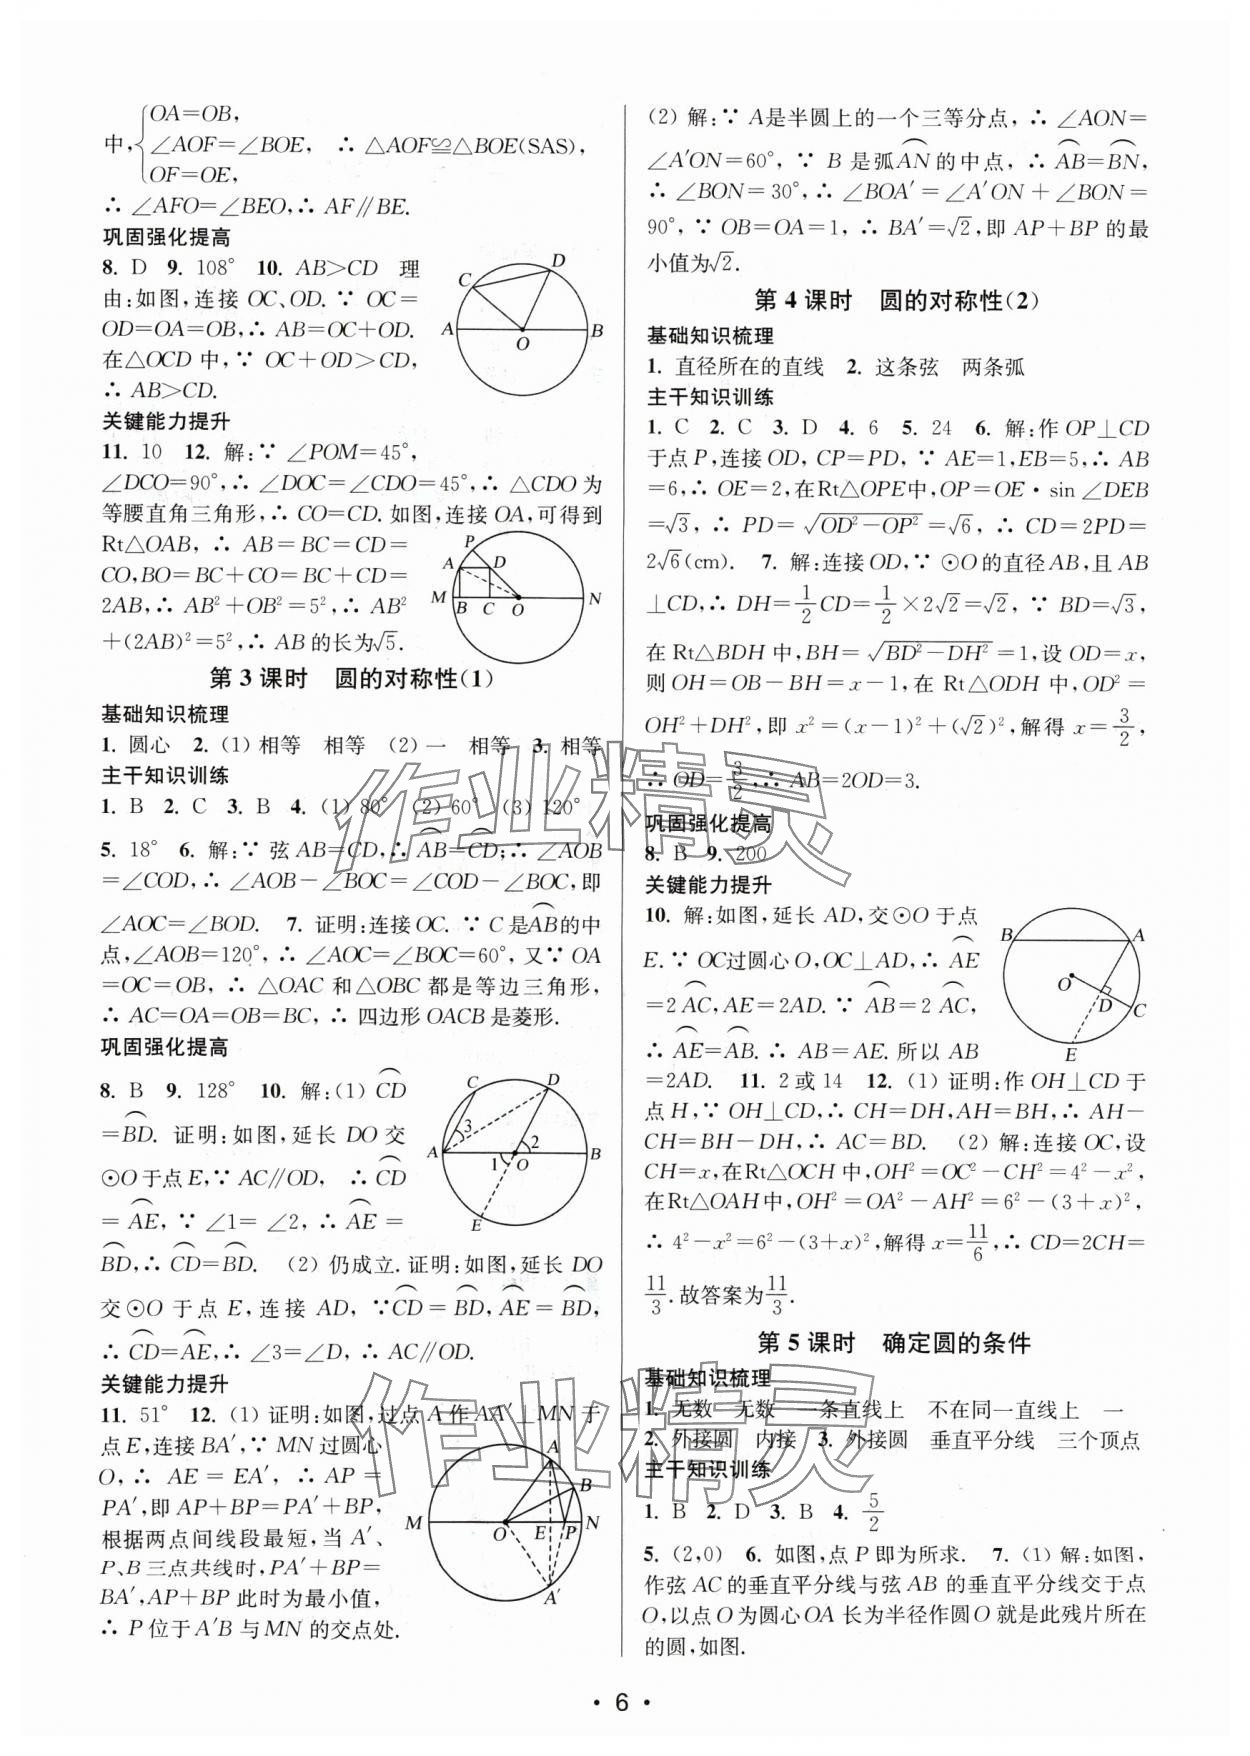 中,{OA=OB,
∠AOF=∠BOE, ∴ △AOF≌△BOE(SAS),
OF=OE,
∴ ∠AFO=∠BEO,∴ AF∥BE.
巩固强化提高
8. D 9. 108° 10. AB>CD 理
由:如图,连接 OC、OD. ∵ OC=
OD=OA=OB,∴ AB=OC+OD.
在△OCD 中,∵ OC+OD>CD,
∴ AB>CD.
C D A O B
关键能力提升
11. 10 12. 解:∵ ∠POM=45°,
∠DCO=90°,∴ ∠DOC=∠CDO=45°,∴ △CDO 为
等腰直角三角形,∴ CO=CD. 如图,连接 OA,可得到
Rt△OAB, ∴ AB=BC=CD=
CO,BO=BC+CO=BC+CD=
2AB,∴ AB²+OB²=5²,∴ AB²
+(2AB)²=5²,∴ AB 的长为√5.
P A D M B C O N
第 3 课时 圆的对称性(1)
基础知识梳理
1. 圆心 2. (1) 相等 相等 (2) 一 相等 3. 相等
主干知识训练
1. B 2. C 3. B 4. (1) 80° (2) 60° (3) 120°
5. 18° 6. 解:∵ 弦 AB=CD,∴ ⌒AB=⌒CD;∴ ∠AOB
=∠COD,∴ ∠AOB-∠BOC=∠COD-∠BOC,即
∠AOC=∠BOD. 7. 证明:连接 OC. ∵ C 是⌒AB的中
点,∠AOB=120°,∴ ∠AOC=∠BOC=60°,又∵ OA
=OC=OB,∴ △OAC 和△OBC 都是等边三角形,
∴ AC=OA=OB=BC,∴ 四边形 OACB 是菱形.
巩固强化提高
8. B 9. 128° 10. 解:(1) ⌒CD
=⌒BD. 证明:如图,延长 DO 交
⊙O 于点 E,∵ AC∥OD, ∴ ⌒CD
=⌒AE, ∵ ∠1= ∠2,∴ ⌒AE =
⌒BD,∴ ⌒CD=⌒BD. (2) 仍成立. 证明:如图,延长 DO
交⊙O 于点 E,连接 AD, ∵⌒CD=⌒BD,⌒AE=⌒BD,
∴ ⌒CD=⌒AE,∴ ∠3=∠D,∴ AC∥OD.
C D 3 2 A 1 O B E
关键能力提升
11. 51° 12. (1) 证明:如图,过点 A 作 AA′⊥MN 于
点 E,连接 BA′,∵ MN 过圆心
O,∴ AE = EA′, ∴ AP =
PA′,即 AP+BP=PA′+BP,
根据两点间线段最短,当 A′、
P、B 三点共线时,PA′+BP=
BA′,AP+BP 此时为最小值,
∴ P 位于 A′B 与 MN 的交点处.
A B M O E P N A′
(2) 解:∵ A是半圆上的一个三等分点,∴ ∠AON=
∠A′ON=60°, ∵ B 是弧⌒AN 的中点,∴ ⌒AB=⌒BN,
∴ ∠BON=30°,∴ ∠BOA′=∠A′ON+∠BON=
90°,∵ OB=OA=1,∴ BA′=√2,即 AP+BP 的最
小值为√2.
第 4 课时 圆的对称性(2)
基础知识梳理
1. 直径所在的直线 2. 这条弦 两条弧
主干知识训练
1. C 2. C 3. D 4. 6 5. 24 6. 解:作 OP⊥CD
于点 P,连接 OD, CP=PD, ∵ AE=1,EB=5,∴ AB
=6,∴ OE=2,在Rt△OPE中,OP=OE·sin ∠DEB
=√3, ∴ PD= √(OD²-OP²)=√6, ∴ CD=2PD=
2√6(cm). 7. 解:连接 OD,∵ ⊙O 的直径 AB,且 AB
⊥CD,∴ DH=1/2 CD=1/2×2√2=√2, ∵ BD=√3,
在 Rt△BDH 中,BH=√(BD²-DH²)=1,设 OD=x,
则 OH=OB-BH=x-1,在 Rt△ODH 中,OD²=
OH²+DH²,即 x²=(x-1)²+(√2)²,解得 x=3/2,
∴ OD=3/2,∴ AB=2OD=3.
巩固强化提高
8. B 9. 200
关键能力提升
10. 解:如图,延长 AD,交⊙O 于点
E. ∵ OC过圆心 O,OC⊥AD,∴ ⌒AE
=2⌒AC,AE=2AD. ∵ ⌒AB=2⌒AC,
∴ ⌒AE=⌒AB. ∴ AB=AE. 所以 AB
=2AD. 11. 2 或 14 12. (1) 证明:作 OH⊥CD 于
点 H,∵ OH⊥CD,∴ CH=DH,AH=BH,∴ AH-
CH=BH-DH,∴ AC=BD. (2) 解:连接 OC,设
CH=x,在Rt△OCH 中,OH²=OC²-CH²=4²-x²,
在Rt△OAH中,OH²=OA²-AH²=6²-(3+x)²,
∴ 4²-x²=6²-(3+x)²,解得 x=11/6,∴ CD=2CH=
11/3. 故答案为11/3.
B A O D C E
第 5 课时 确定圆的条件
基础知识梳理
1. 无数 无数 一条直线上 不在同一直线上 一
2. 外接圆 内接 3. 外接圆 垂直平分线 三个顶点
主干知识训练
1. B 2. D 3. B 4. 5/2
5. (2,0) 6. 如图,点 P 即为所求. 7. (1) 解:如图,
作弦 AC 的垂直平分线与弦 AB 的垂直平分线交于点
O,以点 O 为圆心 OA 长为半径作圆 O 就是此残片所在
的圆,如图.
作业精灵
作业精灵
· 6 ·